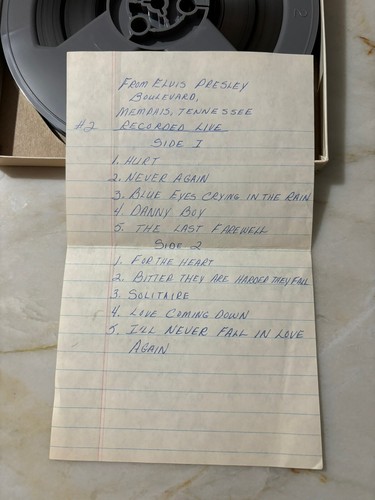 FROM ELVIS PRESLEY
BOULEVARD,
MEMPHIS, TENNESSEE
#2 RECORDED LIVE
SIDE I
1. HURT
2. NEVER AGAIN
3. BLUE EYES CRYING IN THE RAIN
4. DANNY BOY
5. THE LAST FAREWELL
SIDE 2
1. FOR THE HEART
2. BITTER THEY ARE HARDER THEY FALL
3. SOLITAIRE
4. LOVE COMING DOWN
5. I'LL NEVER FALL IN LOVE
AGAIN